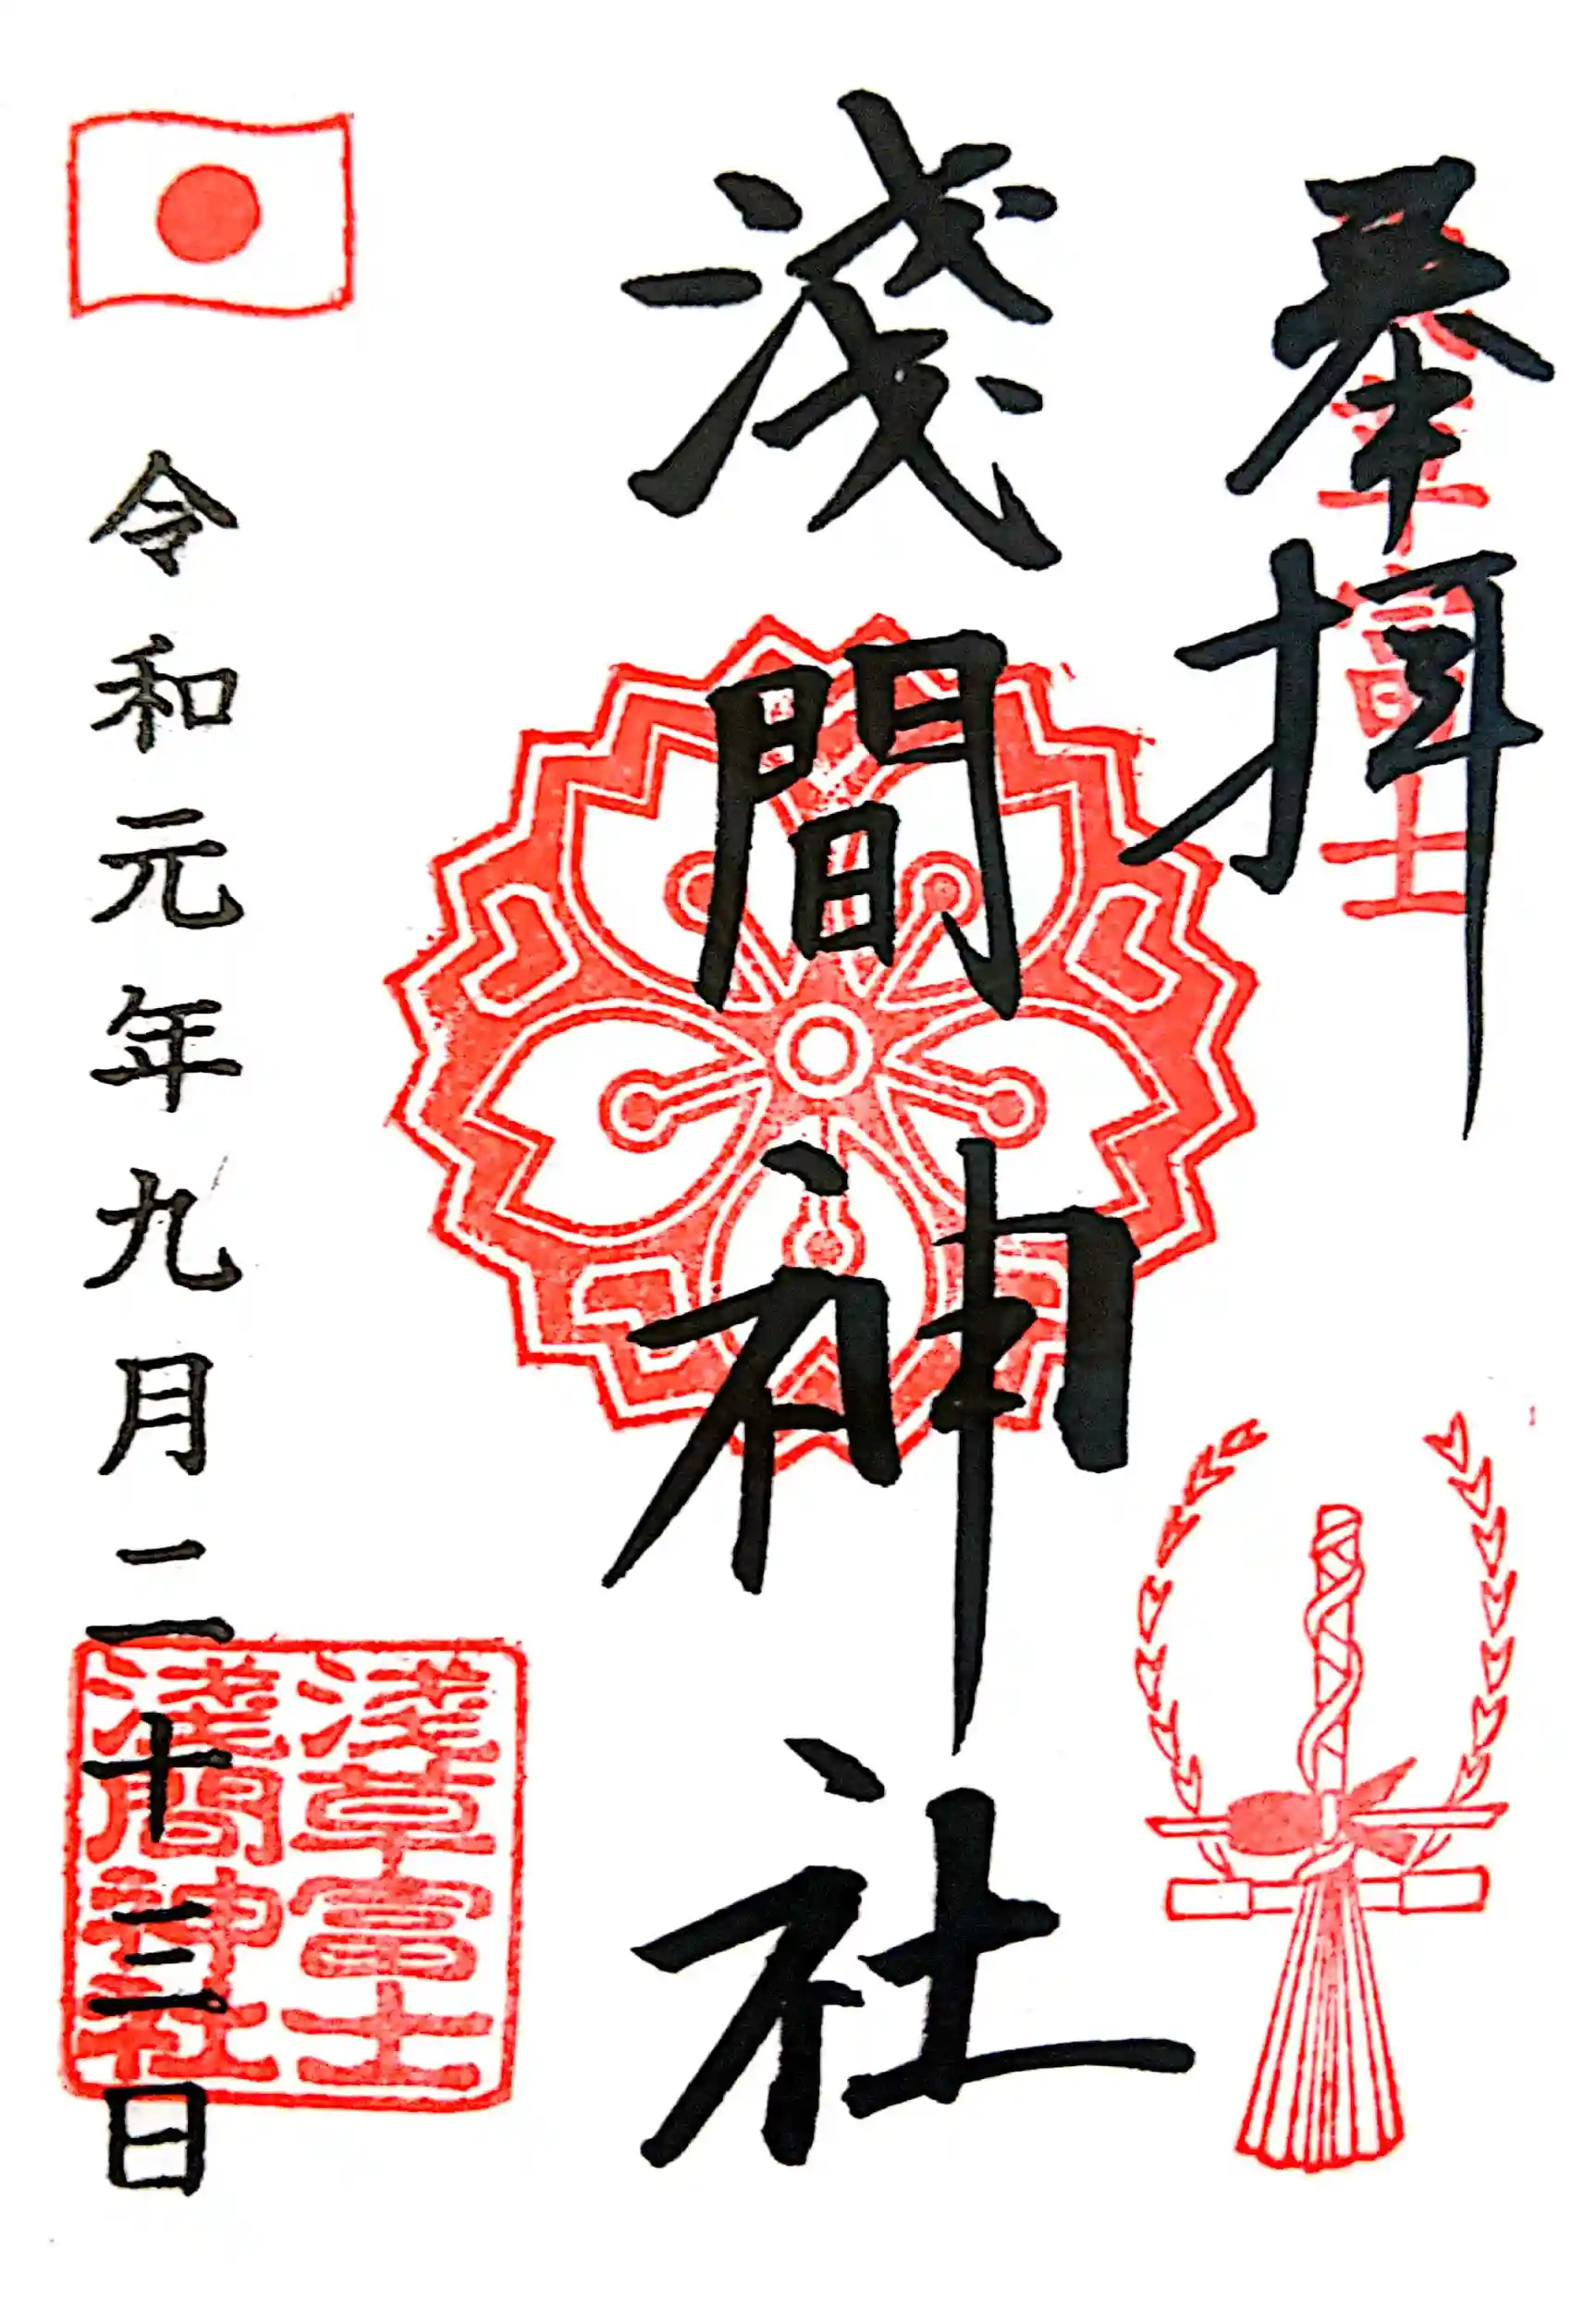 奉拝
浅草富士
淺間神社
淺草富士
淺間神社
令和元年九月二十三日